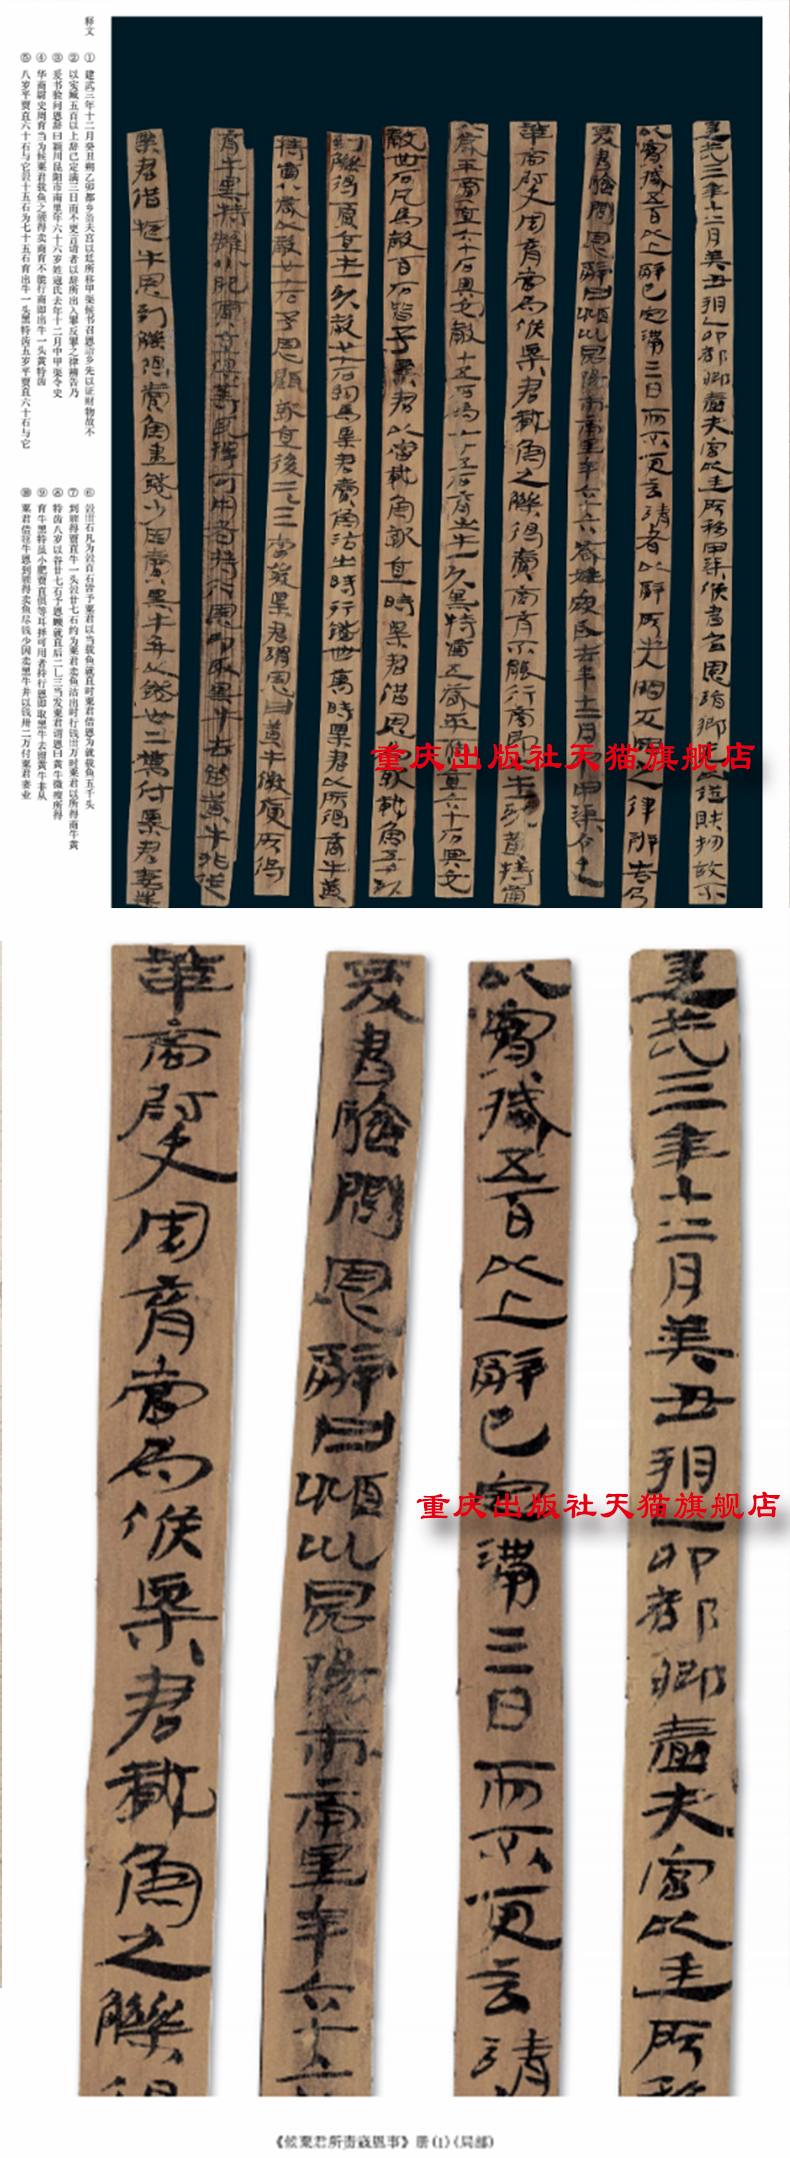 释文
① 建武三年十二月癸丑朔乙卯都乡啬夫宫以廷所移甲渠候书召恩诣乡先以证财物故不
② 以实臧五百以上辞已定满三日而不更言请者以辞所出入罪反罪之律辨告乃
③ 爰书验问恩辞曰颍川昆阳市南里年六十六岁姓寇氏去年十二月中甲渠令史
④ 华商尉史周育当为候粟君载鱼之觻得卖商育不能行商即出牛一头黄特齿
⑤ 八岁平贾直六十石与它谷十五石为七十五石育出牛一头黑特齿五岁平贾直六十石与它
⑥ 谷卌石凡为谷百石皆予粟君以当载鱼就直时粟君借恩为就载鱼五千头
⑦ 到觻得贾直牛一头谷廿七石约为粟君卖鱼沽出时行钱卌万时粟君以所得商牛黄
⑧ 特齿八岁以谷廿七石予恩顾就直后二三当发粟君谓恩曰黄牛微瘦所得
⑨ 育牛黑特虽小肥贾直俱等耳择可用者持行恩即取黑牛去留黄牛非从
⑩ 粟君借牛恩到觻得卖鱼尽钱少因卖黑牛并以钱卅二万付粟君妻业
建武三年十二月癸丑朔乙卯都鄉嗇夫宮以廷所移甲渠候書召恩詣鄉先以證財物故不
以實臧五百以上辭已定滿三日而不更言請者以辭所出入罪反罪之律辨告乃
爰書驗問恩辭曰潁川昆陽市南里年六十六歲姓寇氏去年十二月中甲渠令史
華商尉史周育當為候粟君載魚之觻得賣商育不能行商即出牛一頭黃特齒
八歲平賈直六十石與它穀十五石為七十五石育出牛一頭黑特齒五歲平賈直六十石與它
穀卌石凡為穀百石皆予粟君以當載魚就直時粟君借恩為就載魚五千頭
到觻得賈直牛一頭穀廿七石約為粟君賣魚沽出時行錢卌萬時粟君以所得商牛黃
特齒八歲以穀廿七石予恩顧就直後二三當發粟君謂恩曰黃牛微瘦所得
育牛黑特雖小肥賈直俱等耳擇可用者持行恩即取黑牛去留黃牛非從
粟君借牛恩到觻得賣魚盡錢少因賣黑牛并以錢卅二萬付粟君妻業
重庆出版社天猫旗舰店
建武三年十二月癸丑朔乙卯都鄉嗇夫宮以廷所移
以實臧五百以上辭已定滿三日而不更言請
爰書驗問恩辭曰潁川昆陽市南里年六十六
華商尉史周育當為候粟君載魚之觻得
重庆出版社天猫旗舰店
《候粟君所责寇恩事》册(1)(局部)